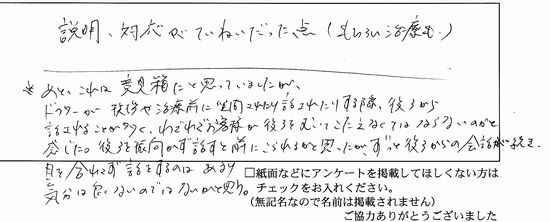 説明、対応がていねいだった点(もちろん治療も。)
*あと、これは意見箱にと思っていましたが、
ドクターが挨拶や治療前に質問されたり話されたりする際、後ろから
話されることが多く、わざわざお客様が後ろをむいてこたえなくてはならないのかと
感じた。後ろを振向かず話すと前にこられるかと思ったが、ずっと後ろからの会話が続き、
目を合わせず話をするのは あまり
気分は良くないのではないかと思う。
□紙面などにアンケートを掲載してほしくない方は
チェックをお入れください。
(無記名なので名前は掲載されません)
ご協力ありがとうございました